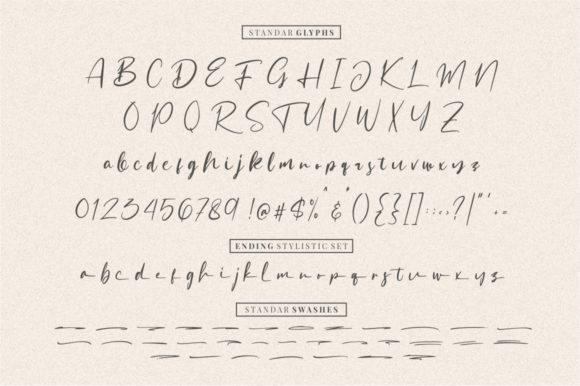 STANDAR GLYPHS
A B C D E F G H I J K L M N
O P Q R S T U V W X Y Z
a b c d e f g h i j k l m n o p q r s t u v w x y z
0 1 2 3 4 5 6 7 8 9 ! @ # $ % ^ & * ( ) { } [ ] : ; , . ? | " '
ENDING STYLISTIC SET
a b c d e f g h i j k l m n o p q r s t u v w x y z
STANDAR SWASHES